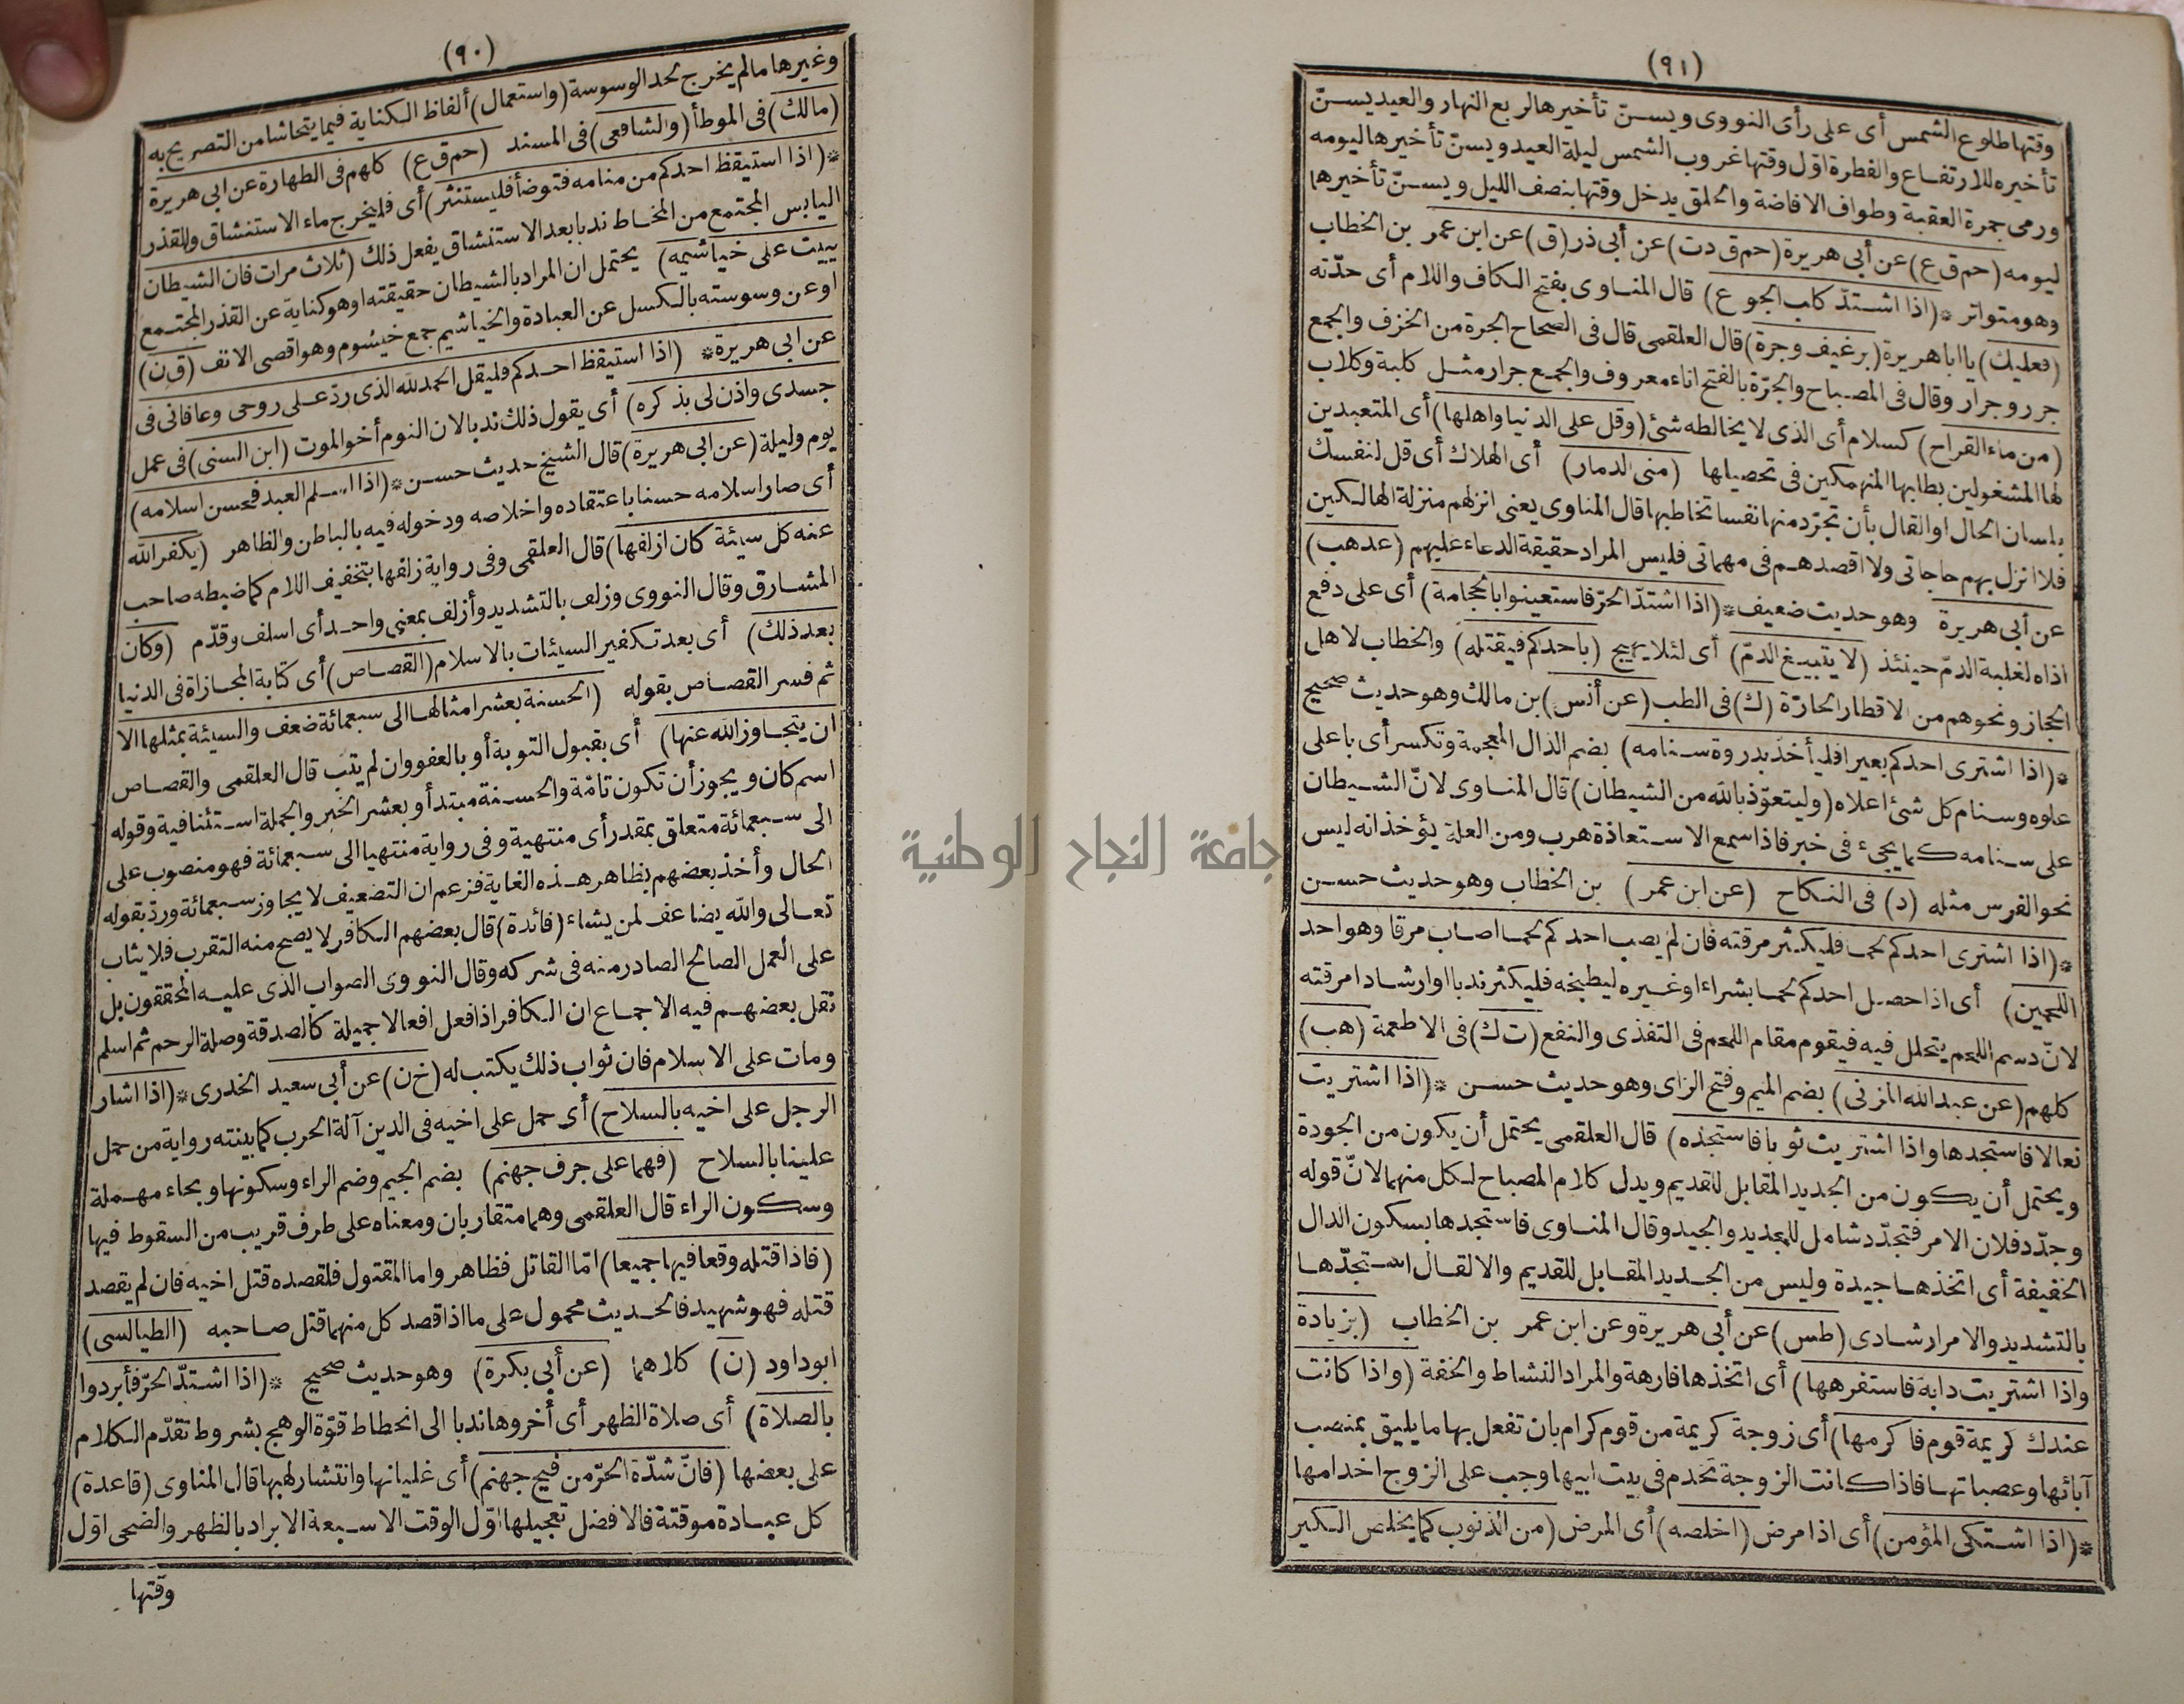 (٩٠)
وغيرها مالم يخرج لحد الوسوسة (واستعمال) ألفاظ الكناية فيما يتحاشا من التصريح به
(مالك) فى الموطأ (والشافعى) فى المسند (حم ق ع) كلهم فى الطهارة عن ابى هريرة
* (اذا استيقظ احدكم من منامه فتوضأ فليستنثر) أى فليخرج ماء الاستنشاق والقذر
اليابس المجتمع من المخاط ندبا بعد الاستنشاق يفعل ذلك (ثلاث مرات فان الشيطان
يبيت على خياشيمه) يحتمل ان المراد بالشيطان حقيقته اوهو كناية عن القذر المجتمع
اوعن وسوسته بالكسل عن العبادة والخياشيم جمع خيشوم وهو اقصى الانف (ق ن)
عن ابى هريرة * (اذا استيقظ احدكم فليقل الحمد لله الذى ردّ على روحى وعافانى فى
جسدى واذن لى بذكره) أى يقول ذلك ندبا لان النوم أخو الموت (ابن السنى) فى عمل
يوم وليلة (عن ابى هريرة) قال الشيخ حديث حسن * (اذا اسلم العبد فحسن اسلامه)
أى صار اسلامه حسنا باعتقاده واخلاصه ودخوله فيه بالباطن والظاهر (يكفر الله
عنه كل سيئة كان ازلفها) قال العلقمى وفى رواية زلفها بتخفيف اللام كما ضبطه صاحب
المشارق وقال النووى وزلف بالتشديد وأزلف بمعنى واحد أى اسلف وقدّم (وكان
بعد ذلك) أى بعد تكفير السيئات بالاسلام (القصاص) أى كتابة المجازاة فى الدنيا
ثم فسر القصاص بقوله (الحسنة بعشر امثالها الى سبعمائة ضعف والسيئة بمثلها الا
ان يتجاوز الله عنها) أى بقبول التوبة أو بالعفو وان لم يتب قال العلقمى والقصاص
اسم كان ويجوز أن تكون تامّة والحسنة مبتدأ وبعشر الخبر والجملة استئنافية وقوله
الى سبعمائة متعلق بمقدر أى منتهية وفى رواية منتهيا الى سبعمائة فهو منصوب على
الحال وأخذ بعضهم بظاهر هذه الغاية فزعم ان التضعيف لا يجاوز سبعمائة وردّ بقوله
تعالى والله يضاعف لمن يشاء (فائدة) قال بعضهم الكافر لا يصح منه التقرب فلا يثاب
على العمل الصالح الصادر منه فى شركه وقال النووى الصواب الذى عليه المحققون بل
نقل بعضهم فيه الاجماع ان الكافر اذا فعل افعالا جميلة كالصدقة وصلة الرحم ثم اسلم
ومات على الاسلام فان ثواب ذلك يكتب له (خ ن) عن أبى سعيد الخدرى * (اذا اشار
الرجل على اخيه بالسلاح) أى حمل على اخيه فى الدين آلة الحرب كما بينته رواية من حمل
علينا بالسلاح (فهما على جرف جهنم) بضم الجيم وضم الراء وسكونها وبحاء مهملة
وسكون الراء قال العلقمى وهما متقاربان ومعناه على طرف قريب من السقوط فيها
(فاذا قتله وقعا فيها جميعا) امّا القاتل فظاهر واما المقتول فلقصده قتل اخيه فان لم يقصد
قتله فهو شهيد فالحديث محمول على ما اذا قصد كل منهما قتل صاحبه (الطيالسى)
ابوداود (ن) كلاهما (عن أبى بكرة) وهو حديث صحيح * (اذا اشتدّ الحرّ فأبردوا
بالصلاة) أى صلاة الظهر أى أخروها ندبا الى انحطاط قوّة الوهج بشروط تقدّم الكلام
على بعضها (فانّ شدّة الحرّ من فيح جهنم) أى غليانها وانتشار لهبها قال المناوى (قاعدة)
كل عبادة موقتة فالافضل تعجيلها اوّل الوقت الاسبعة الابراد بالظهر والضحى اوّل
وقتها
(٩١)
وقتها طلوع الشمس أى على رأى النووى ويسنّ تأخيرها لربع النهار والعيد يسنّ
تأخيره للارتفاع والفطرة اوّل وقتها غروب الشمس ليلة العيد ويسنّ تأخيرها ليومه
ورمى جمرة العقبة وطواف الافاضة والحلق يدخل وقتها بنصف الليل ويسنّ تأخيرها
ليومه (حم ق ع) عن أبى هريرة (حم ق دت) عن أبى ذر (ق) عن ابن عمر بن الخطاب
وهو متواتر * (اذا اشتدّ كلب الجوع) قال المناوى بفتح الكاف واللام أى حدّته
(فعليك) يا ابا هريرة (برغيف وجرة) قال العلقمى قال فى الصحاح الجرة من الخزف والجمع
جرر وجرار وقال فى المصباح والجرّة بالفتح اناء معروف والجمع جرار مثل كلبة وكلاب
(من ماء القراح) كسلام أى الذى لا يخالطه شئ (وقل على الدنيا واهلها) أى المتعبدين
لها المشغولين بطلبها المنهمكين فى تحصيلها (منى الدمار) أى الهلاك أى قل لنفسك
بلسان الحال او القال بأن تجرّد منها نفسا تخاطبها قال المناوى يعنى انزلهم منزلة الهالكين
فلا انزل بهم حاجاتى ولا اقصدهم فى مهماتى فليس المراد حقيقة الدعاء عليهم (عد هب)
عن أبى هريرة وهو حديث ضعيف * (اذا اشتدّ الحرّ فاستعينوا بالحجامة) أى على دفع
اذاه لغلبة الدمّ حينئذ (لا يتبيغ الدمّ) أى لئلا يهيج (باحدكم فيقتله) والخطاب لاهل
الحجاز ونحوهم من الاقطار الحارّة (ك) فى الطب (عن أنس) بن مالك وهو حديث صحيح
* (اذا اشترى احدكم بعيرا فليأخذ بذروة سنامه) بضم الذال المعجمة وتكسر أى باعلى
علوه وسنام كل شئ اعلاه (وليتعوّذ بالله من الشيطان) قال المناوى لانّ الشيطان
على سنامه كما يجىء فى خبر فاذا سمع الاستعاذة هرب ومن العلة يؤخذ انه ليس
نحو الفرس مثله (د) فى النكاح (عن ابن عمر) بن الخطاب وهو حديث حسن
* (اذا اشترى احدكم لحما فليكثر مرقته فان لم يصب احدكم لحما اصاب مرقا وهو احد
اللحمين) أى اذا حصل احدكم لحما بشراء او غيره ليطبخه فليكثر ندبا او ارشادا مرقته
لانّ دسم اللحم يتحلل فيه فيقوم مقام اللحم فى التغذى والنفع (ت ك) فى الاطعمة (هب)
كلهم (عن عبد الله المزنى) بضم الميم وفتح الزاى وهو حديث حسن * (اذا اشتريت
نعالا فاستجدها واذا اشتريت ثوبا فاستجده) قال العلقمى يحتمل أن يكون من الجودة
ويحتمل أن يكون من الجديد المقابل للقديم ويدل كلام المصباح لكل منهما لانّ قوله
وجدّد فلان الامر فتجدّد شامل للجديد والجيد وقال المناوى فاستجدها بسكون الدال
الخفيفة أى اتخذها جيدة وليس من الجديد المقابل للقديم والا لقال استجدّها
بالتشديد والامر ارشادى (طس) عن أبى هريرة وعن ابن عمر بن الخطاب (بزيادة
واذا اشتريت دابة فاستفرهها) أى اتخذها فارهة والمراد النشاط والخفة (واذا كانت
عندك كريمة قوم فاكرمها) أى زوجة كريمة من قوم كرام بان تفعل بها ما يليق بمنصب
آبائها وعصباتها فاذا كانت الزوجة تخدم فى بيت ابيها وجب على الزوج اخدامها
* (اذا اشتكى المؤمن) أى اذا مرض (اخلصه) أى المرض (من الذنوب كما يخلص الكير
جامعة النجاح الوطنية